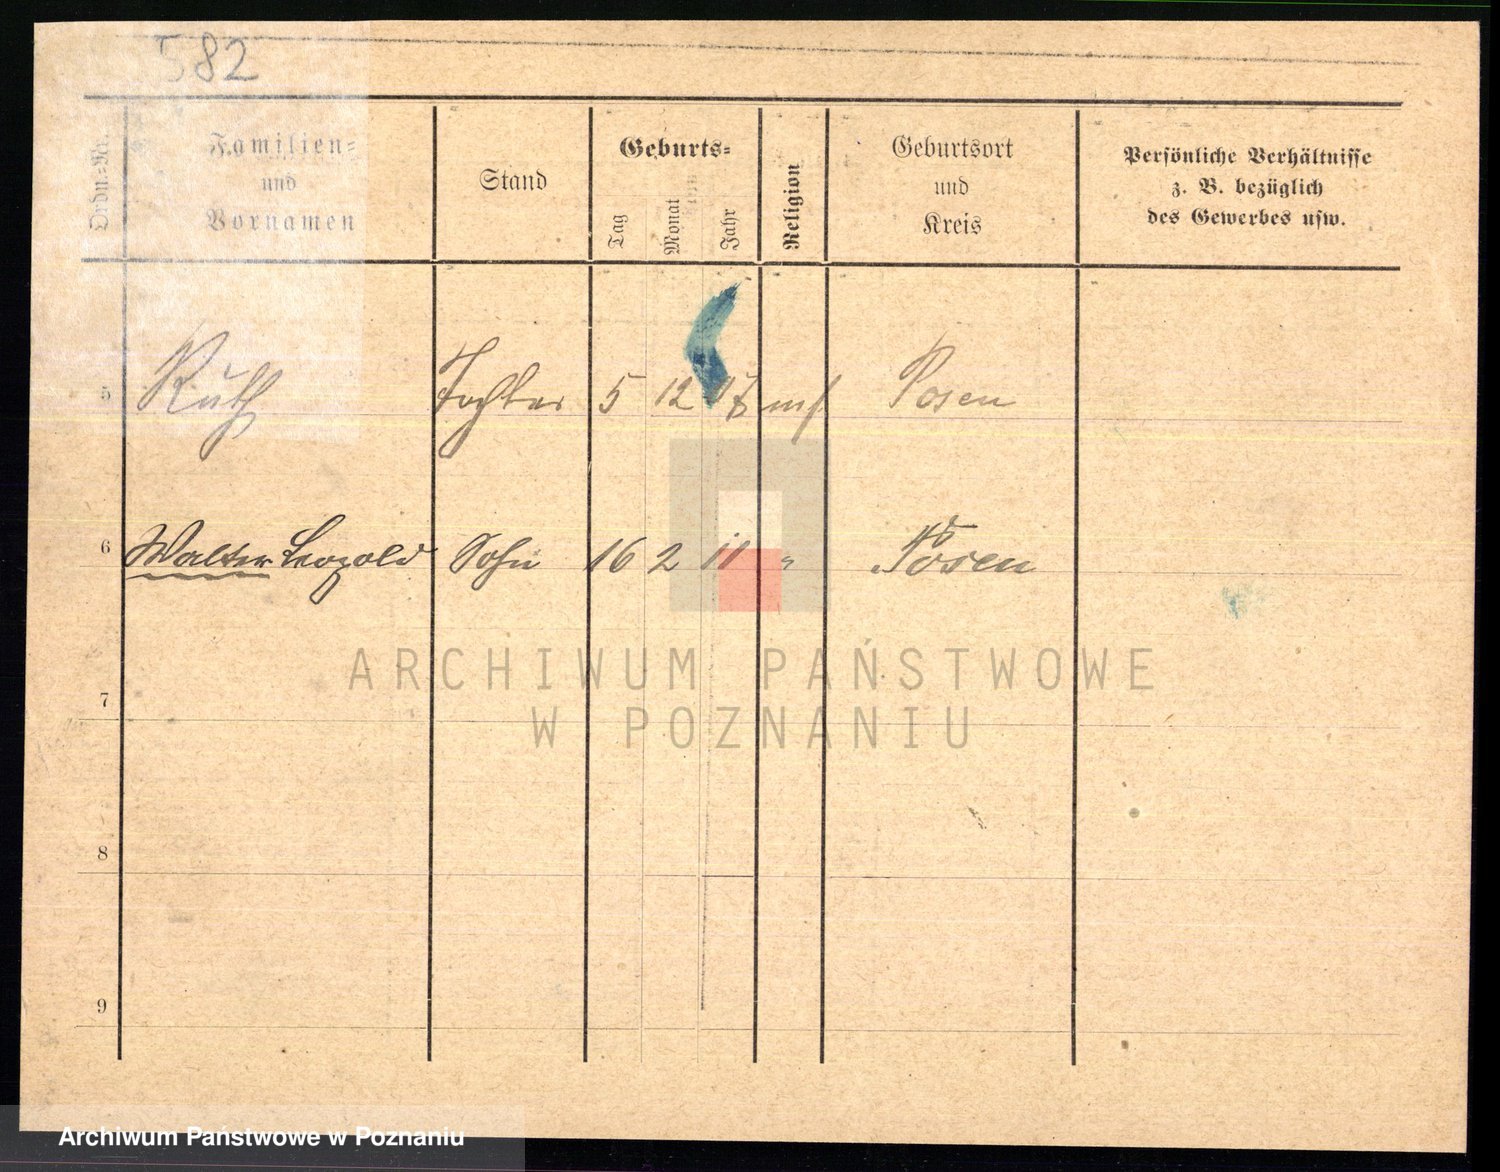 582
Ordn.-Nr.
Familien-
und
Vornamen
Stand
Geburts-
Tag
Monat
Jahr
Religion
Geburtsort
und
Kreis
Persönliche Verhältnisse
z. B. bezüglich
des Gewerbes usw.
5 Ruth Tochter 5 12 Posen
6 Walter Leopold Sohn 16 2 11 " Posen
ARCHIWUM PAŃSTWOWE
W POZNANIU
7
8
9
Archiwum Państwowe w Poznaniu